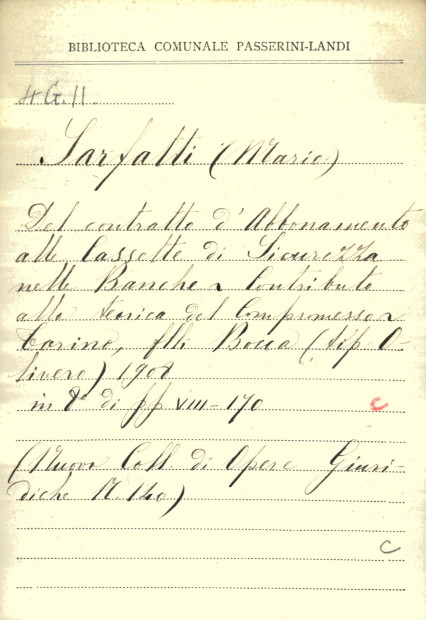 BIBLIOTECA COMUNALE PASSERINI-LANDI
4 G. 11.
Sarfatti (Mario)
Del contratto d'Abbonamento
alle Cassette di Sicurezza
nelle Banche ~ Contributo
alla teorica del Compromesso ~
Torino, flli Bocca (tip. O-
livero) 1908
in 8º di pp VIII-170
C
(Nuova Coll. di Opere Giuri-
diche N. 140)
C